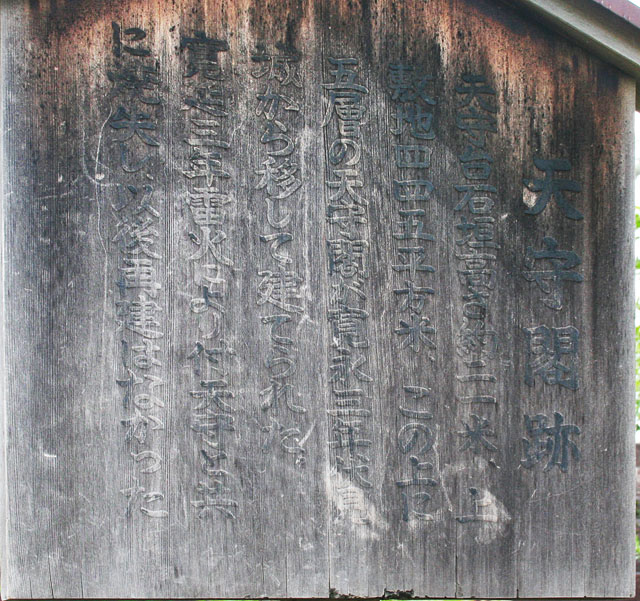 天守閣跡
天守台石垣高さ約二一米、上
敷地四四五平方米、この上に
五層の天守閣が寛永三年伏見
城から移して建てられた。
寛延三年雷火により仔天守と共
に焼失し以後再建はなかった